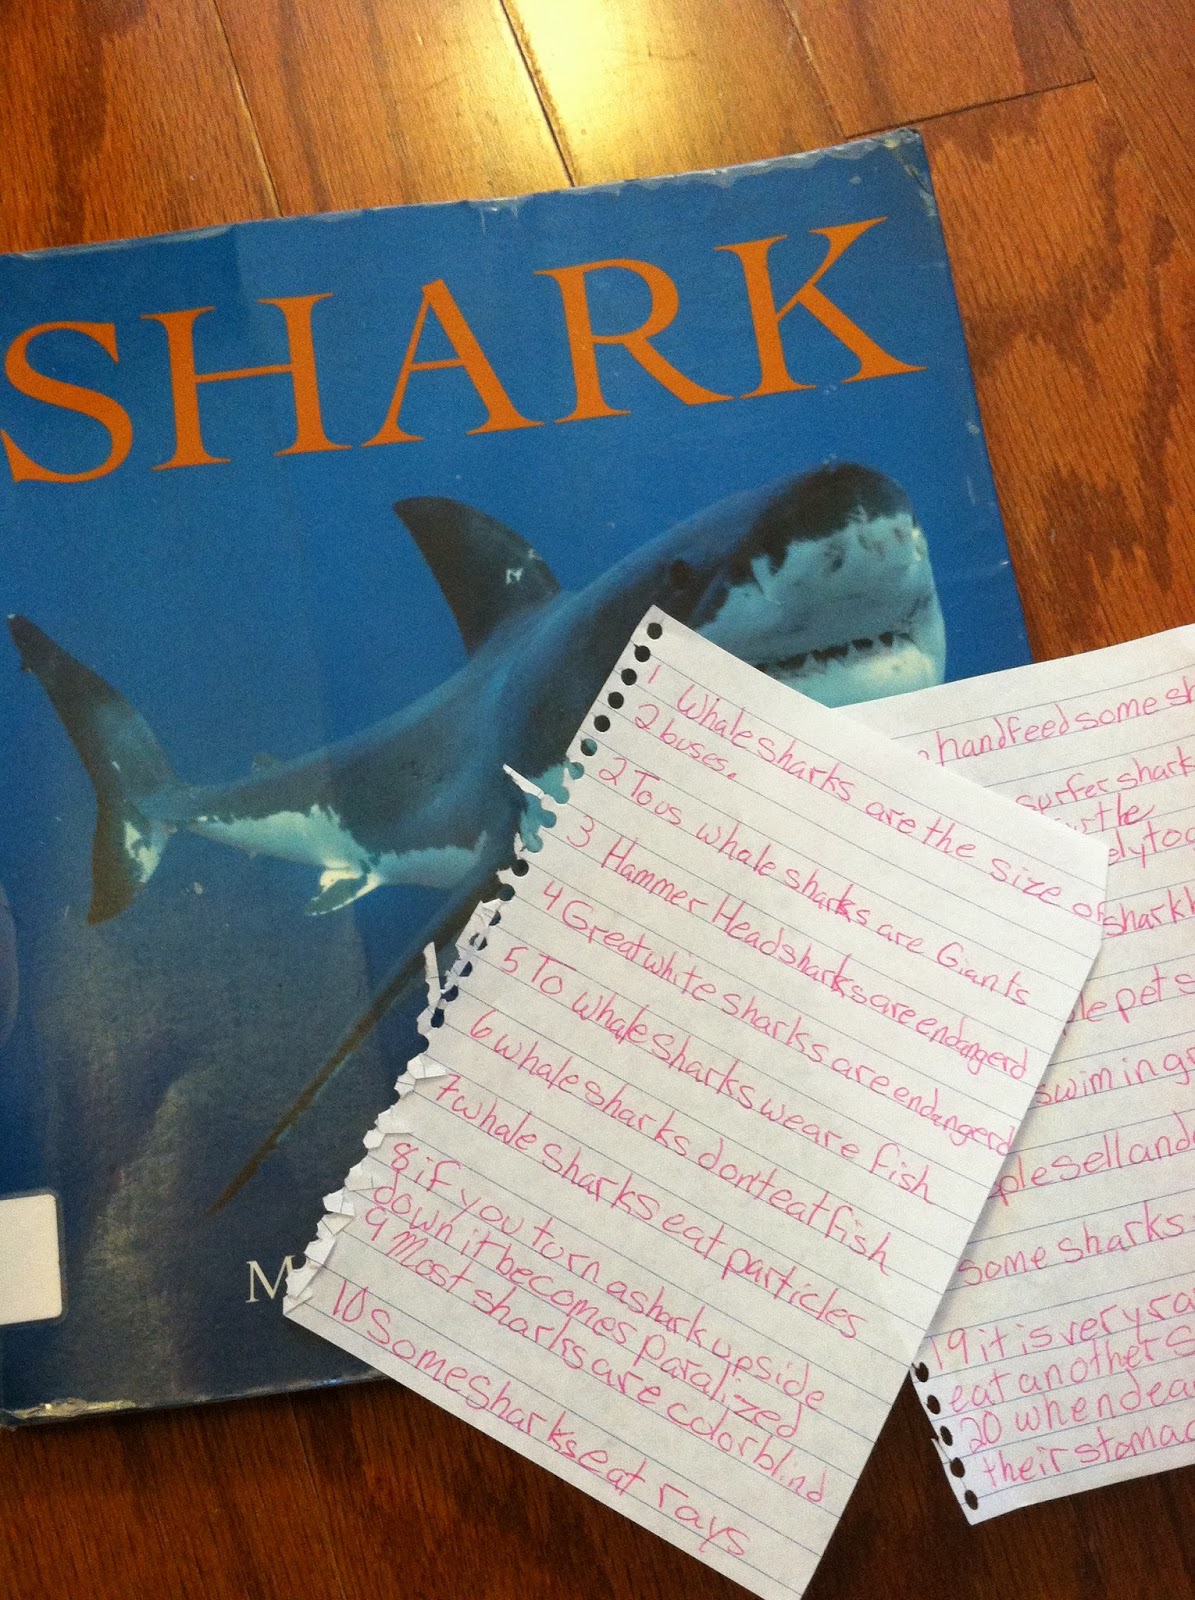 SHARK
M
1 Whale sharks are the size of
2 buses.
2 To us whale sharks are Giants
3 Hammer Head sharks are endangerd
4 Great white sharks are endangerd
5 To whale sharks we are fish
6 whale sharks dont eat fish
7 whale sharks eat particles
8 if you turn a shark upside
down it becomes paralized
9 Most sharks are color blind
10 Some sharks eat rays
hand feed some sh
surfer shark
the
ely too
shark
pets
swimings
ple sell and
some sharks
19 it is very ra
eat another s
20 when dea
their stomac